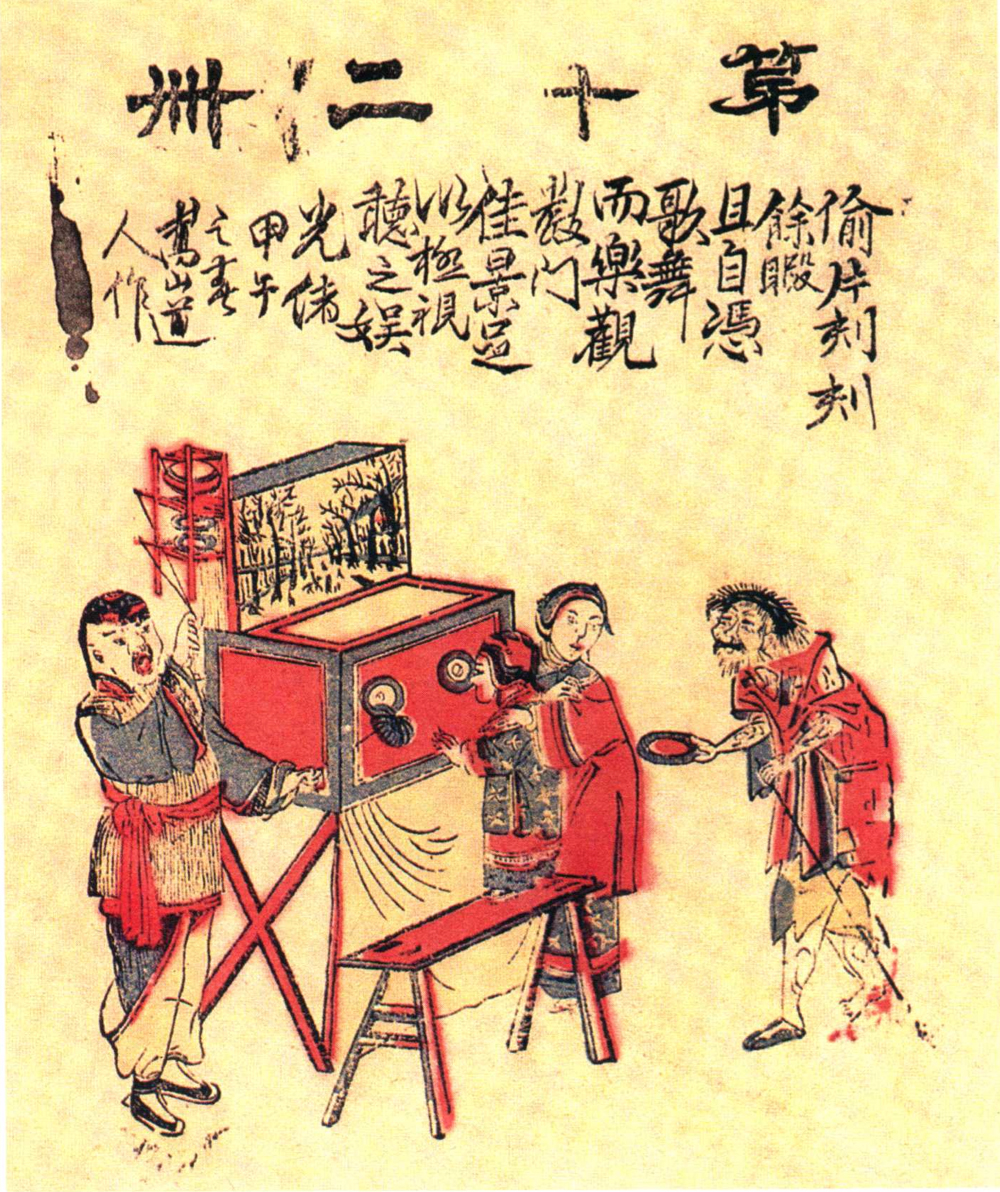 苐十二卌
偷片刻刻
餘暇
且自憑
歌舞
而樂觀
數门
佳景足
以極視
聽之娱
光绪
甲午
之春
嵩山道
人作